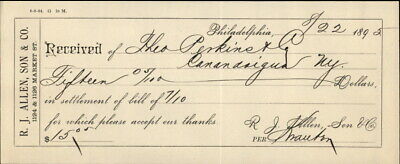 6-8-94. G 20 M.
Philadelphia, 8/22 1895
Received of Theo Perkins & Co
Canandaigua Ny.
Fifteen 05/10 Dollars,
in settlement of bill of 7/10
for which please accept our thanks.
R. J. Allen, Son & Co.
$15.05
PER
R. J. ALLEN, SON & CO.
1124 & 1126 MARKET ST.